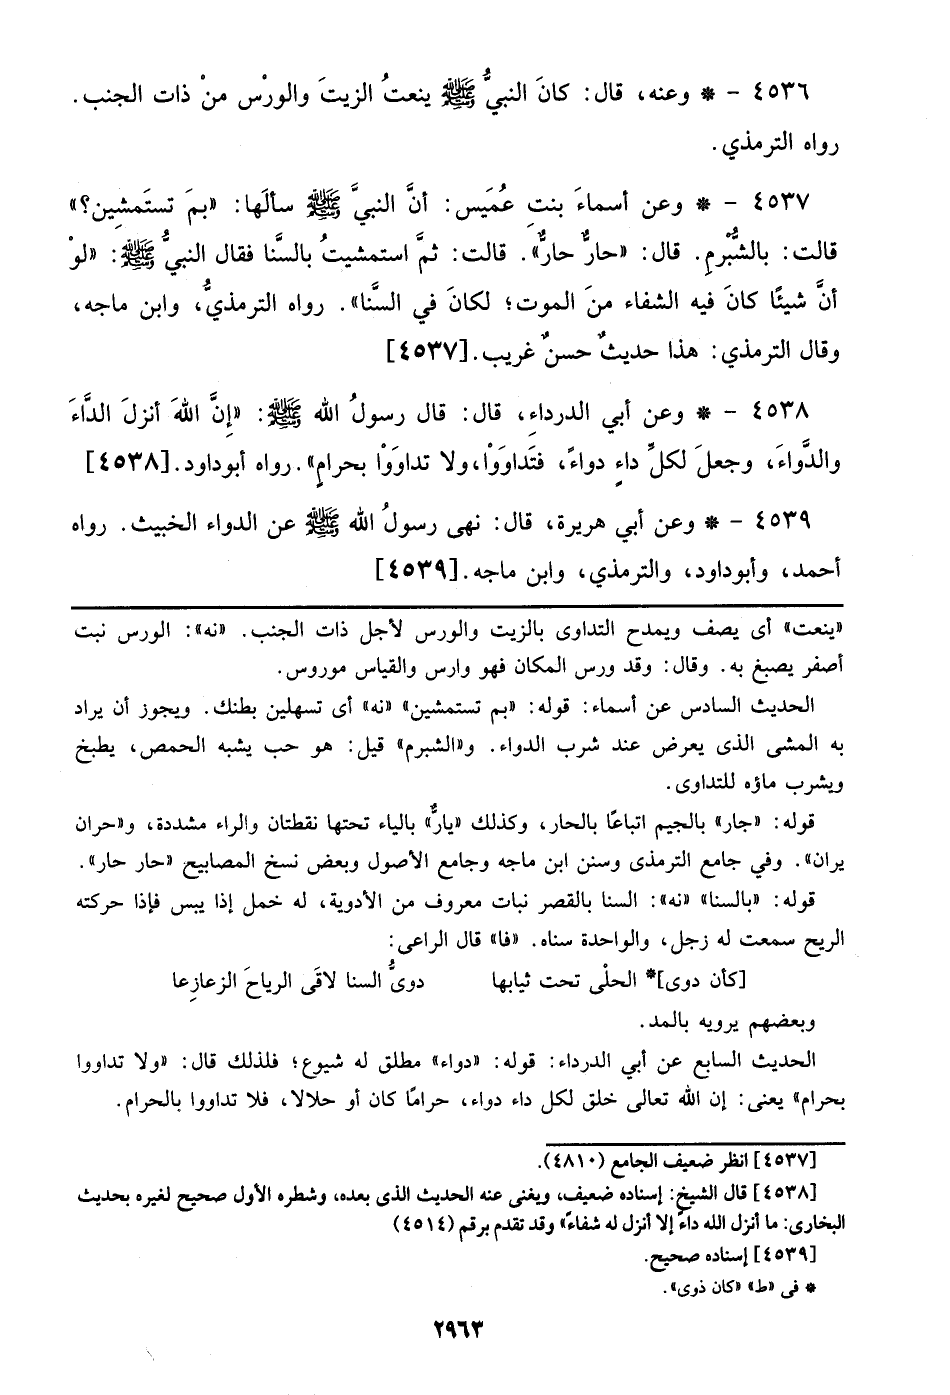 ٤٥٣٦ – * وعنه، قال: كانَ النبيُّ ﷺ ينعتُ الزيتَ والورْس منْ ذات الجنب.
رواه الترمذي.
٤٥٣٧ – * وعن أسماءَ بنتِ عُمَيس: أنَّ النبيَّ ﷺ سألَها: «بمَ تستَمشِين؟»
قالت: بالشُّبْرمِ. قال: «حارٌّ حارٌّ». قالت: ثمَّ استمشيتُ بالسنَّا فقال النبيُّ ﷺ: «لوْ
أنَّ شيئًا كانَ فيه الشفاء منَ الموت؛ لكانَ في السنَّا». رواه الترمذيُّ، وابن ماجه،
وقال الترمذي: هذا حديثٌ حسنٌ غريب.[٤٥٣٧]
٤٥٣٨ – * وعن أبي الدرداءِ، قال: قال رسولُ الله ﷺ: «إِنَّ اللهَ أنزلَ الدَّاءَ
والدَّواءَ، وجعلَ لكلِّ داءٍ دواءً، فتَداوَوْا،ولا تداوَوْا بحرامٍ».رواه أبوداود.[٤٥٣٨]
٤٥٣٩ – * وعن أبي هريرة، قال: نهى رسولُ الله ﷺ عن الدواء الخبيث. رواه
أحمد، وأبوداود، والترمذي، وابن ماجه.[٤٥٣٩]
«ينعت» أى يصف ويمدح التداوى بالزيت والورس لأجل ذات الجنب. «نه»: الورس نبت
أصفر يصبغ به. وقال: وقد ورس المكان فهو وارس والقياس موروس.
الحديث السادس عن أسماء: قوله: «بم تستمشين» «نه» أى تسهلين بطنك. ويجوز أن يراد
به المشى الذى يعرض عند شرب الدواء. و«الشبرم» قيل: هو حب يشبه الحمص، يطبخ
ويشرب ماؤه للتداوى.
قوله: «جار» بالجيم اتباعًا بالحار، وكذلك «يارٌّ» بالياء تحتها نقطتان والراء مشددة، و«حران
يران». وفي جامع الترمذى وسنن ابن ماجه وجامع الأصول وبعض نسخ المصابيح «حار حار».
قوله: «بالسنا» «نه»: السنا بالقصر نبات معروف من الأدوية، له خمل إذا يبس فإذا حركته
الريح سمعت له زجل، والواحدة سناه. «فا» قال الراعى:
[كأن دوى]* الحلْى تحت ثيابها دوىُّ السنا لاقَى الرياحَ الزعازِعا
وبعضهم يرويه بالمد.
الحديث السابع عن أبي الدرداء: قوله: «دواء» مطلق له شيوع؛ فلذلك قال: «ولا تداووا
بحرام» يعنى: إن الله تعالى خلق لكل داء دواء، حرامًا كان أو حلالا، فلا تداووا بالحرام.
[٤٥٣٧] انظر ضعيف الجامع (٤٨١٠).
[٤٥٣٨] قال الشيخ: إسناده ضعيف، ويغنى عنه الحديث الذى بعده، وشطره الأول صحيح لغيره بحديث
البخارى: ما أنزل الله داءً إلا أنزل له شفاءً» وقد تقدم برقم (٤٥١٤)
[٤٥٣٩] إسناده صحيح.
* فى «ط» «كان ذوى».
٢٩٦٣